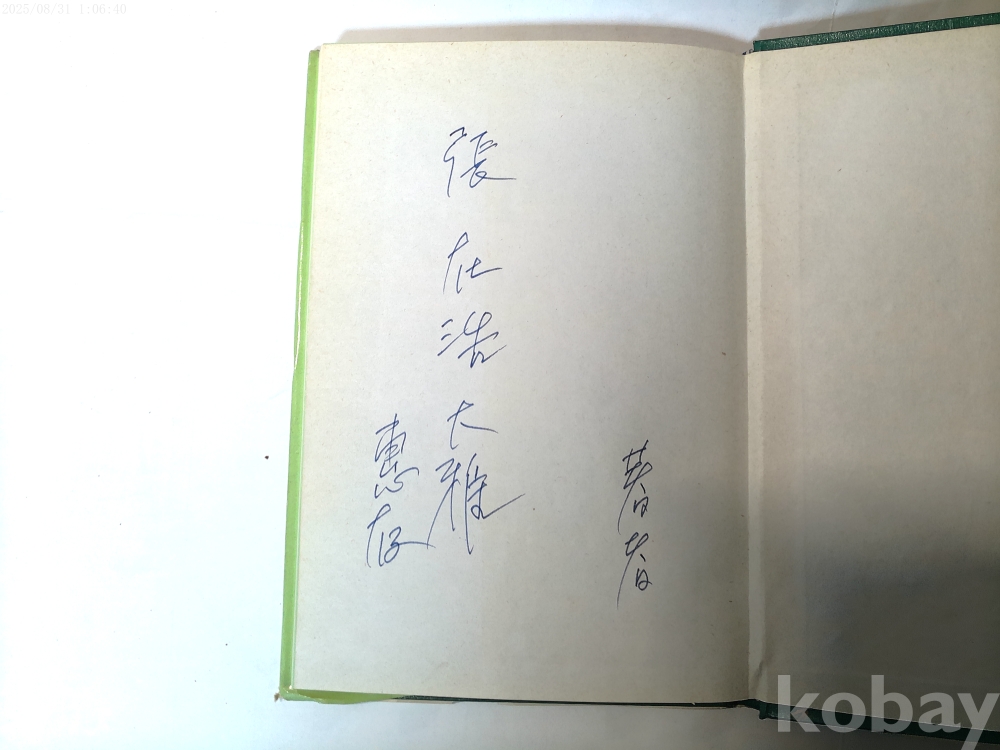 2025/08/31 1:06:40
張在浩大雅
惠存
著者
kobay